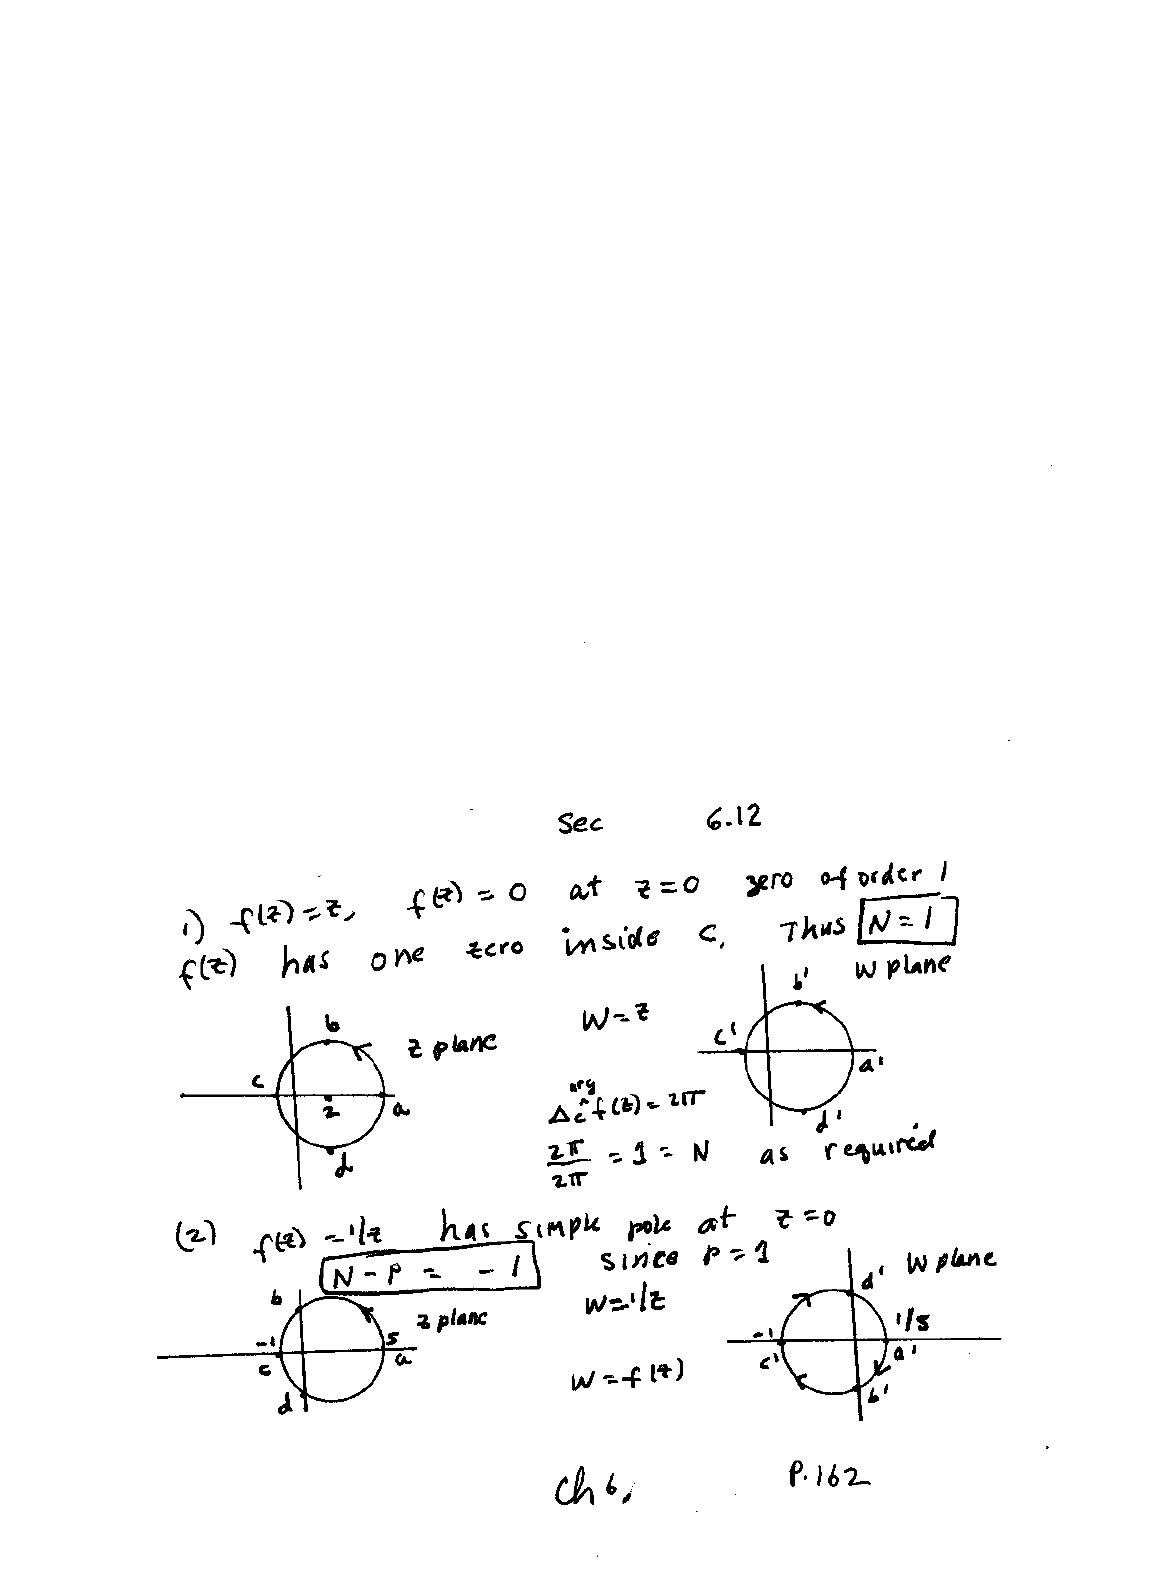 Sec 6.12
1) f(z)=z, f(z) = 0 at z=0 zero of order 1
f(z) has one zero inside C. Thus N=1
b
z plane
c
2
a
d
W=z
Δc arg f(z) = 2π
2π/2π = 1 = N as required
W plane
b'
c'
a'
d'
(2) f(z) = 1/z has simple pole at z=0
N-P = -1 since P=1
b
z plane
-1
c
5
a
d
W=1/z
W=f(z)
d' W plane
1/5
-1
c'
a'
b'
Ch 6, P.162